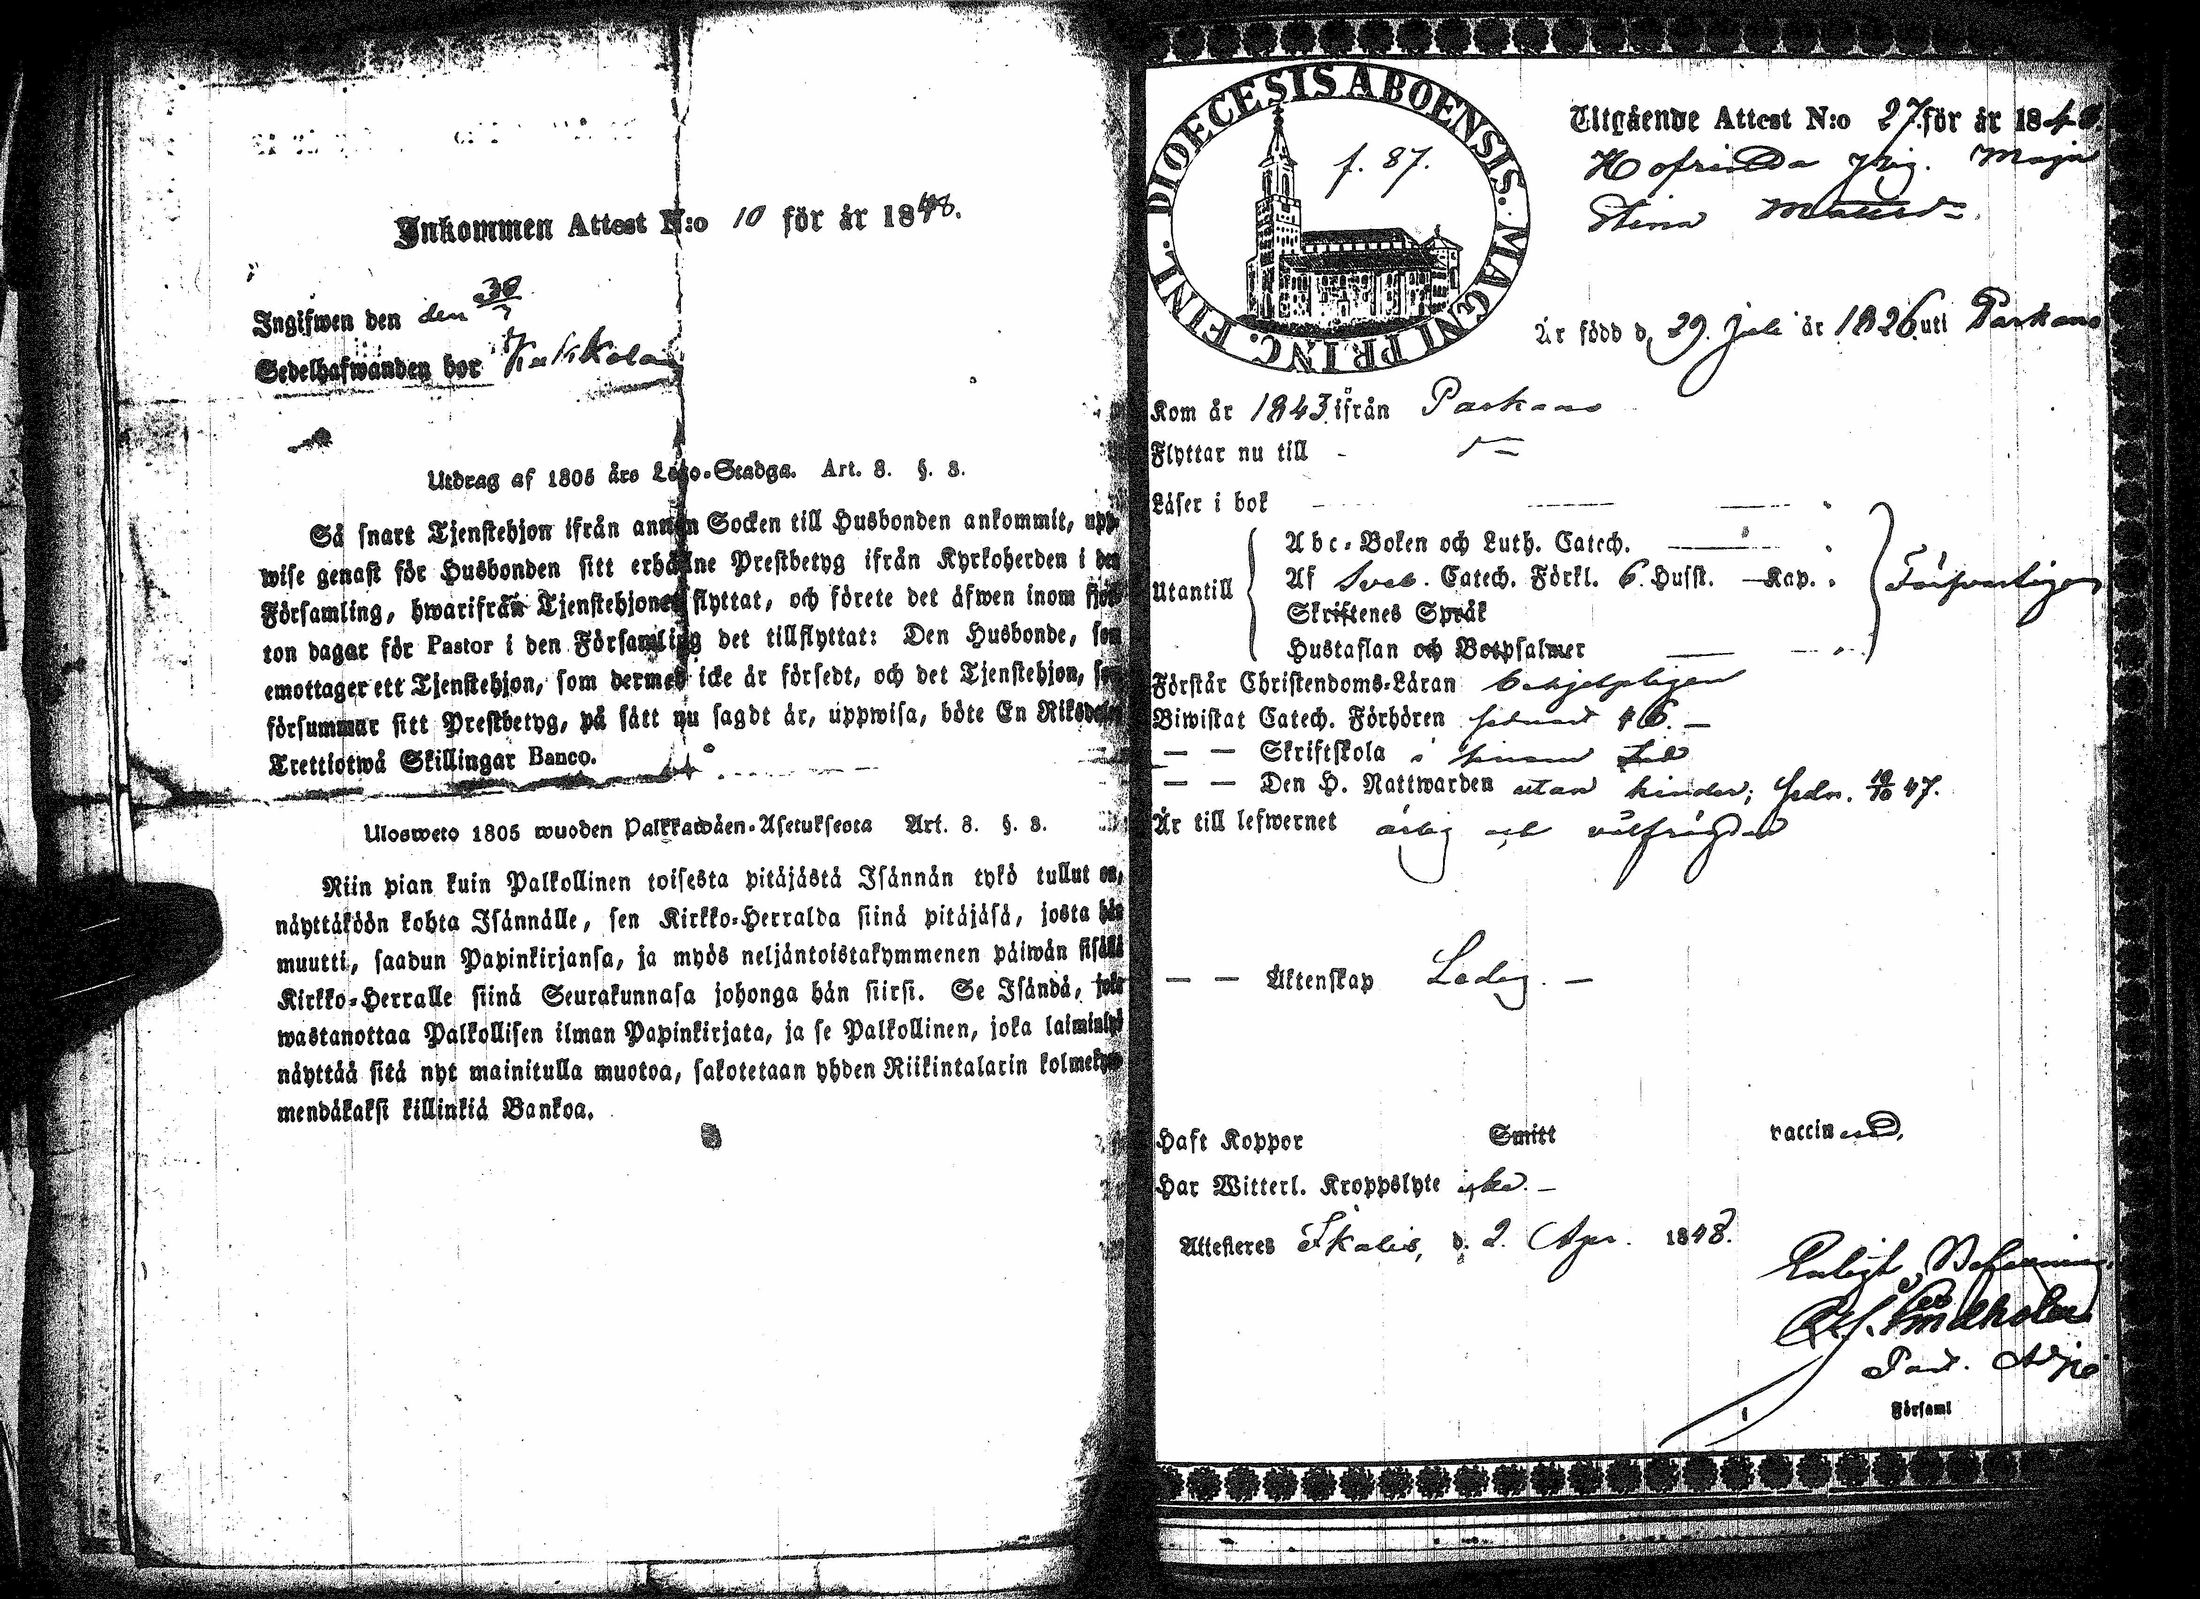 Inkommen Attest N:o 10 för år 1848.
Ingifwen den den 30/7
Sedelhafwanden bor
Utdrag af 1805 års Lego-Stadga. Art. 8. §. 3.
Så snart Tjenstehjon ifrån annan Socken till Husbonden ankommit, upp-
wise genast för Husbonden sitt erhållne Prestbetyg ifrån Kyrkoherden i den
Församling, hwarifrån Tjenstehjonet flyttat, och förete det äfwen inom fjor-
ton dagar för Pastor i den Församling det tillflyttat: Den Husbonde, som
emottager ett Tjenstehjon, som dermed icke är försedt, och det Tjenstehjon, som
försummar sitt Prestbetyg, på sätt nu sagdt är, uppwisa, böte En Riksdaler
Trettiotwå Skillingar Banco.
Ulosweto 1805 wuoden Palkkawäen-Asetuksesta Art. 8. §. 3.
Niin pian kuin Palkollinen toisesta pitäjästä Isännän tykö tullut on,
näyttäköön kohta Isännälle, sen Kirkko-Herralda siinä pitäjäsä, josta hän
muutti, saadun Papinkirjansa, ja myös neljäntoistakymmenen päiwän sisällä
Kirkko-Herralle siinä Seurakunnasa johonga hän siirsi. Se Isändä, joka
wastanottaa Palkollisen ilman Papinkirjata, ja se Palkollinen, joka laiminlyö
näyttää sitä nyt mainitulla muotoa, sakotetaan yhden Riikintalarin kolmekym-
mendäkaksi killinkiä Bankoa.
DIOECESIS ABOENSIS. MAGNI PRINC. FINL.
f. 87.
Utgående Attest N:o 27. för år 1848.
pig. Maja
Stina Mattsdr.
Är född d. 29. Juli år 1826 uti Parkano
Kom år 1843 ifrån Parkano
Flyttar nu till -
Läser i bok
Utantill
Abc-Boken och Luth. Catech.
Af Sveb. Catech. Förkl. 6. Husst. — Kap.
Skriftenes Språk
Hustaflan och Botpsalmer
Försvarligen
Förstår Christendoms-Läran behjelpligen
Biwistat Catech. Förhören senast 46. —
— — Skriftskola i sinom tid
— — Den H. Nattwarden utan hinder; sedn. 10/10 47.
Är till lefwernet ärlig och välfrägdad
— — Äktenskap Ledig. —
Haft Koppor Smitt vaccinerad.
Har Witterl. Kroppslyte icke. —
Attesteres Ikalis, d. 2. Apr. 1848.
Enligt
Past. Adj.
i Församl